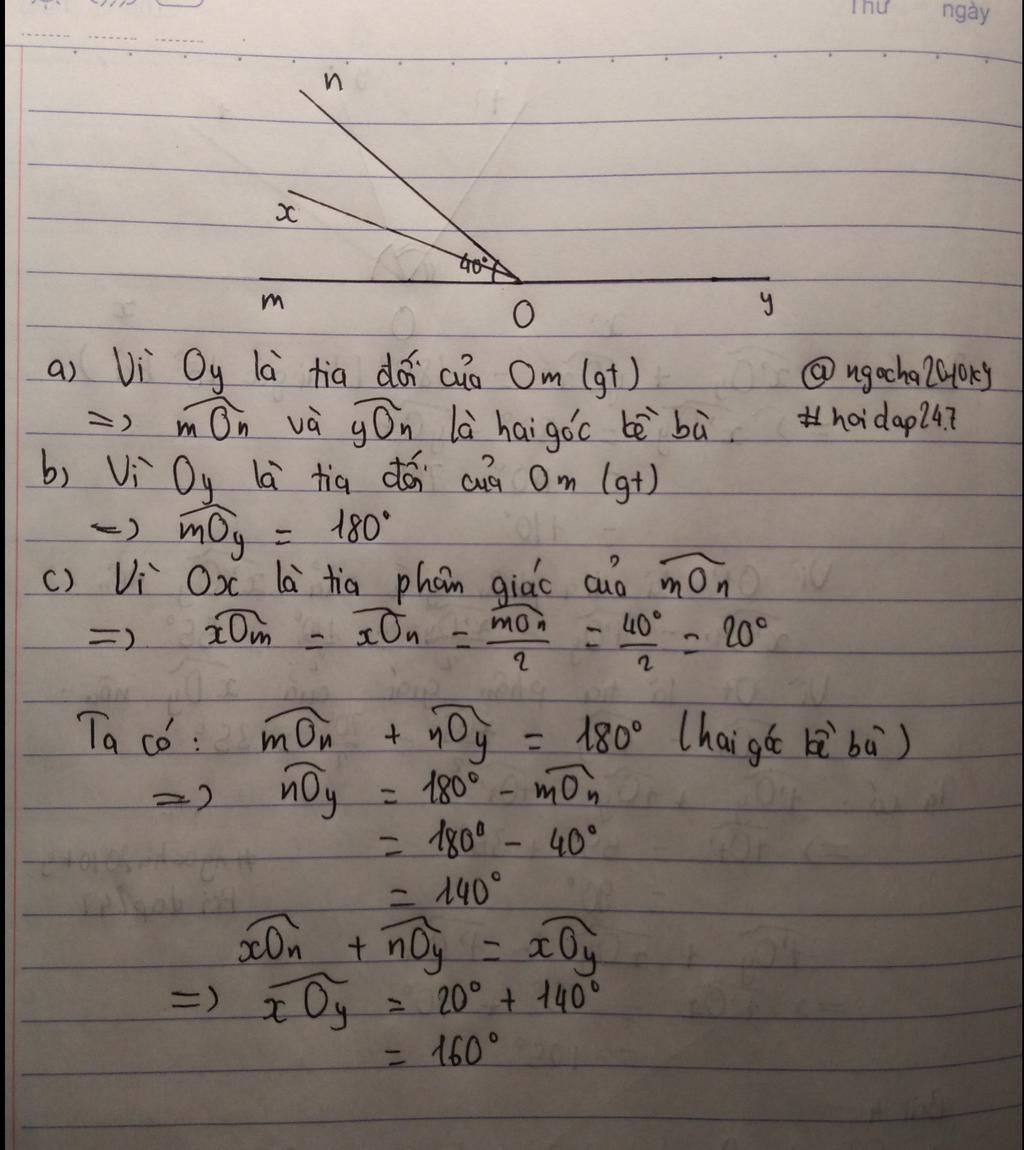 Thứ ngày
n
x
40°
m
O
y
a) Vì Oy là tia đối của Om (gt)
@ngocha2010ky
=> mOn và yOn là hai góc kề bù.
#hoidap247
b) Vì Oy là tia đối của Om (gt)
=> mOy = 180°
c) Vì Ox là tia phân giác của mOn
=> xOm = xOn = mOn/2 = 40°/2 = 20°
Ta có: mOn + nOy = 180° (hai góc kề bù)
=> nOy = 180° - mOn
= 180° - 40°
= 140°
xOn + nOy = xOy
=> xOy = 20° + 140°
= 160°